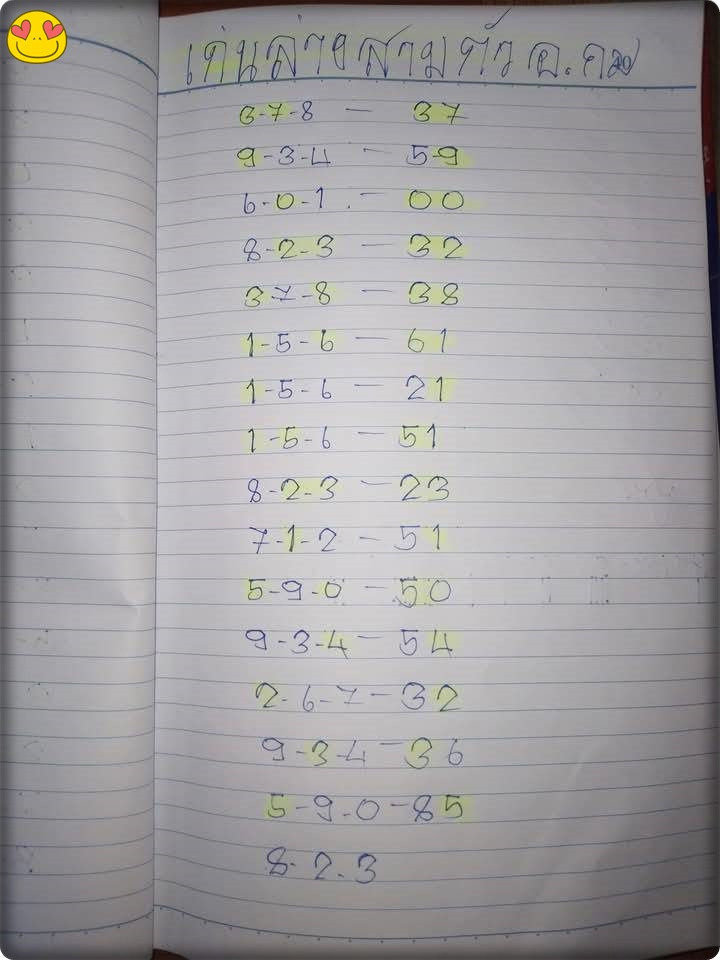 เด่นล่างสามตัว อ.
3-7-8 — 37
9-3-4 — 59
6-0-1 — 00
8-2-3 — 32
3-7-8 — 38
1-5-6 — 61
1-5-6 — 21
1-5-6 — 51
8-2-3 — 23
7-1-2 — 51
5-9-0 — 50
9-3-4 — 54
2-6-7 — 32
9-3-4 — 36
5-9-0 — 85
8-2-3